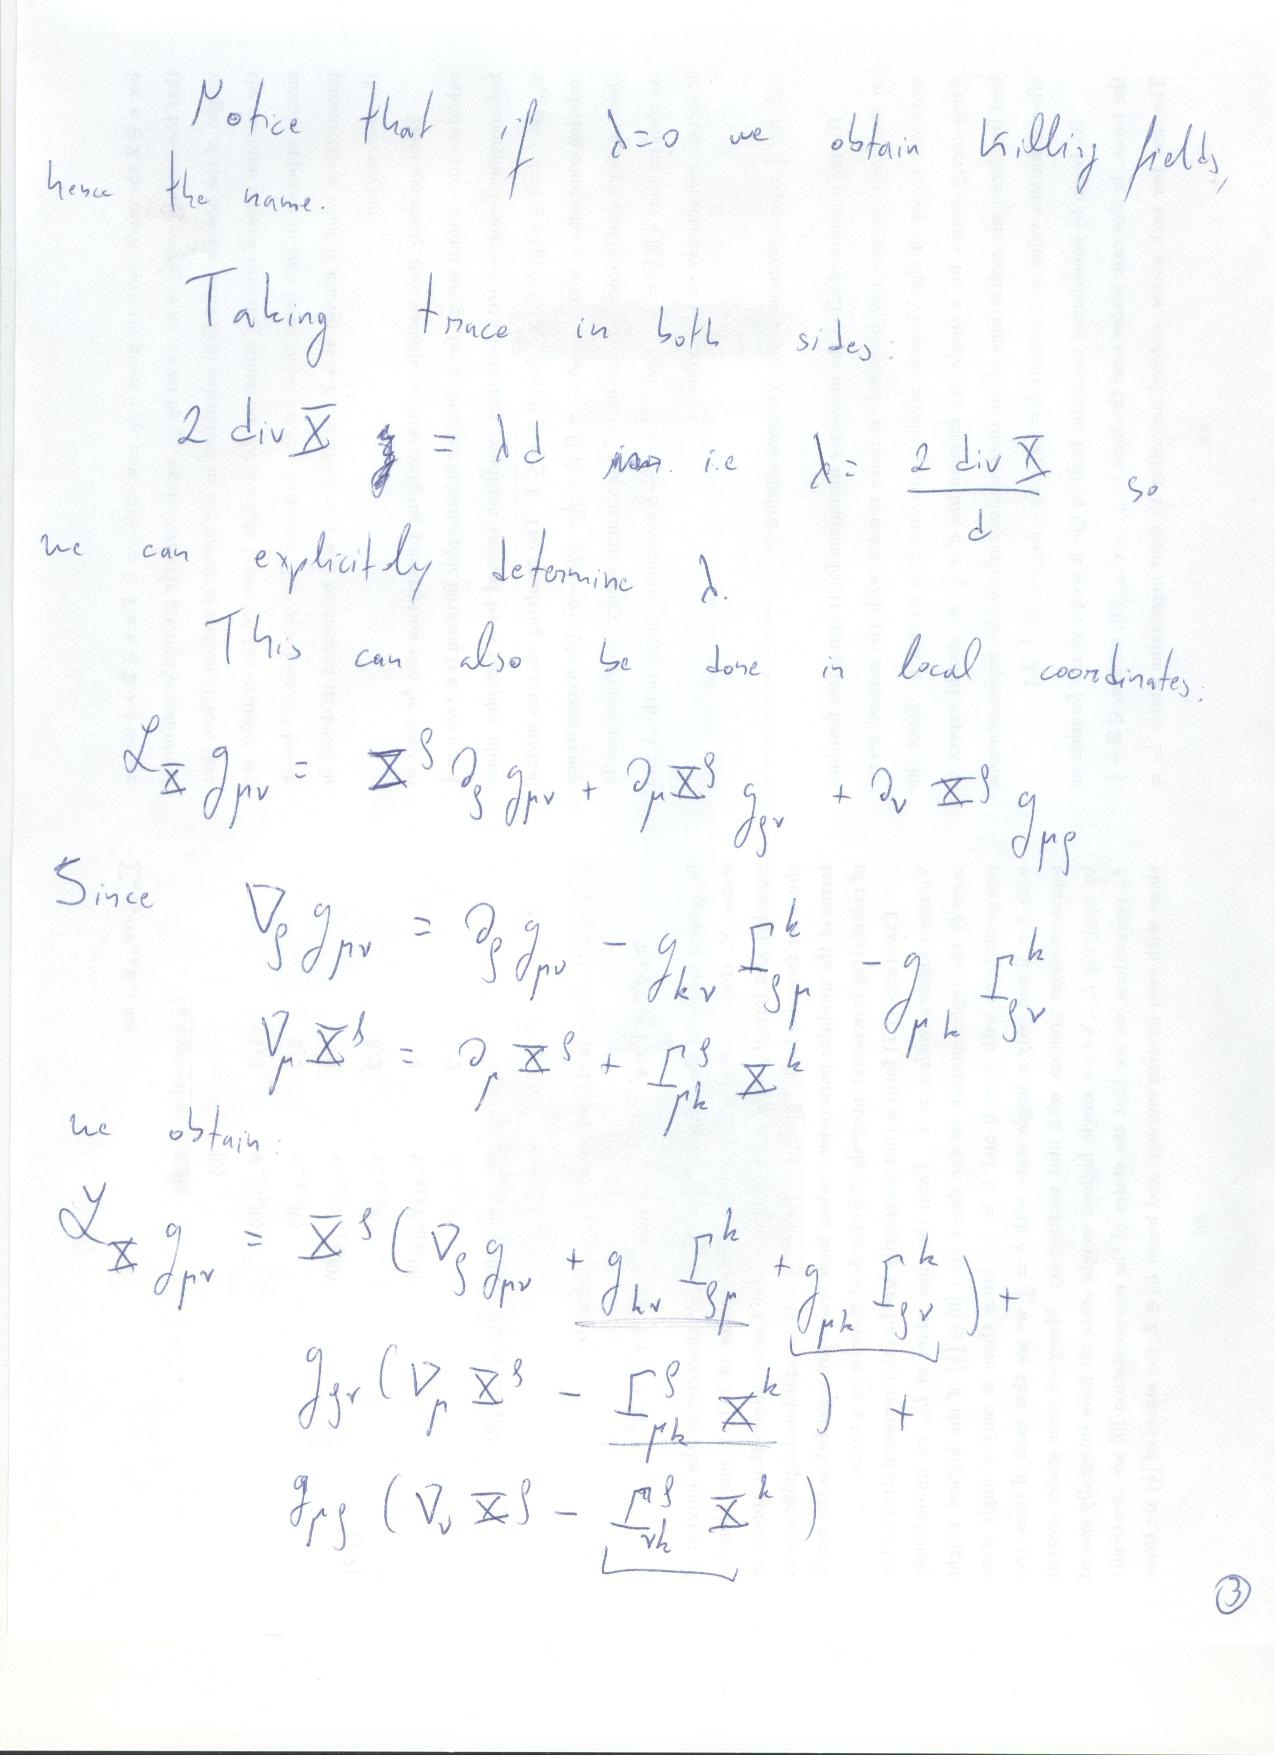 Notice that if λ=0 we obtain Killing fields,
hence the name.
Taking trace in both sides:
2 div X = λ d i.e λ = 2 div X / d so
we can explicitely determine λ.
This can also be done in local coordinates:
ℒ_X g_μν = X^ρ ∂_ρ g_μν + ∂_μ X^ρ g_ρν + ∂_ν X^ρ g_μρ
Since ∇_ρ g_μν = ∂_ρ g_μν - g_kν Γ^k_ρμ - g_μk Γ^k_ρν
∇_μ X^ρ = ∂_μ X^ρ + Γ^ρ_μk X^k
we obtain:
ℒ_X g_μν = X^ρ ( ∇_ρ g_μν + g_kν Γ^k_ρμ + g_μk Γ^k_ρν ) +
g_ρν ( ∇_μ X^ρ - Γ^ρ_μk X^k ) +
g_μρ ( ∇_ν X^ρ - Γ^ρ_νk X^k )
3